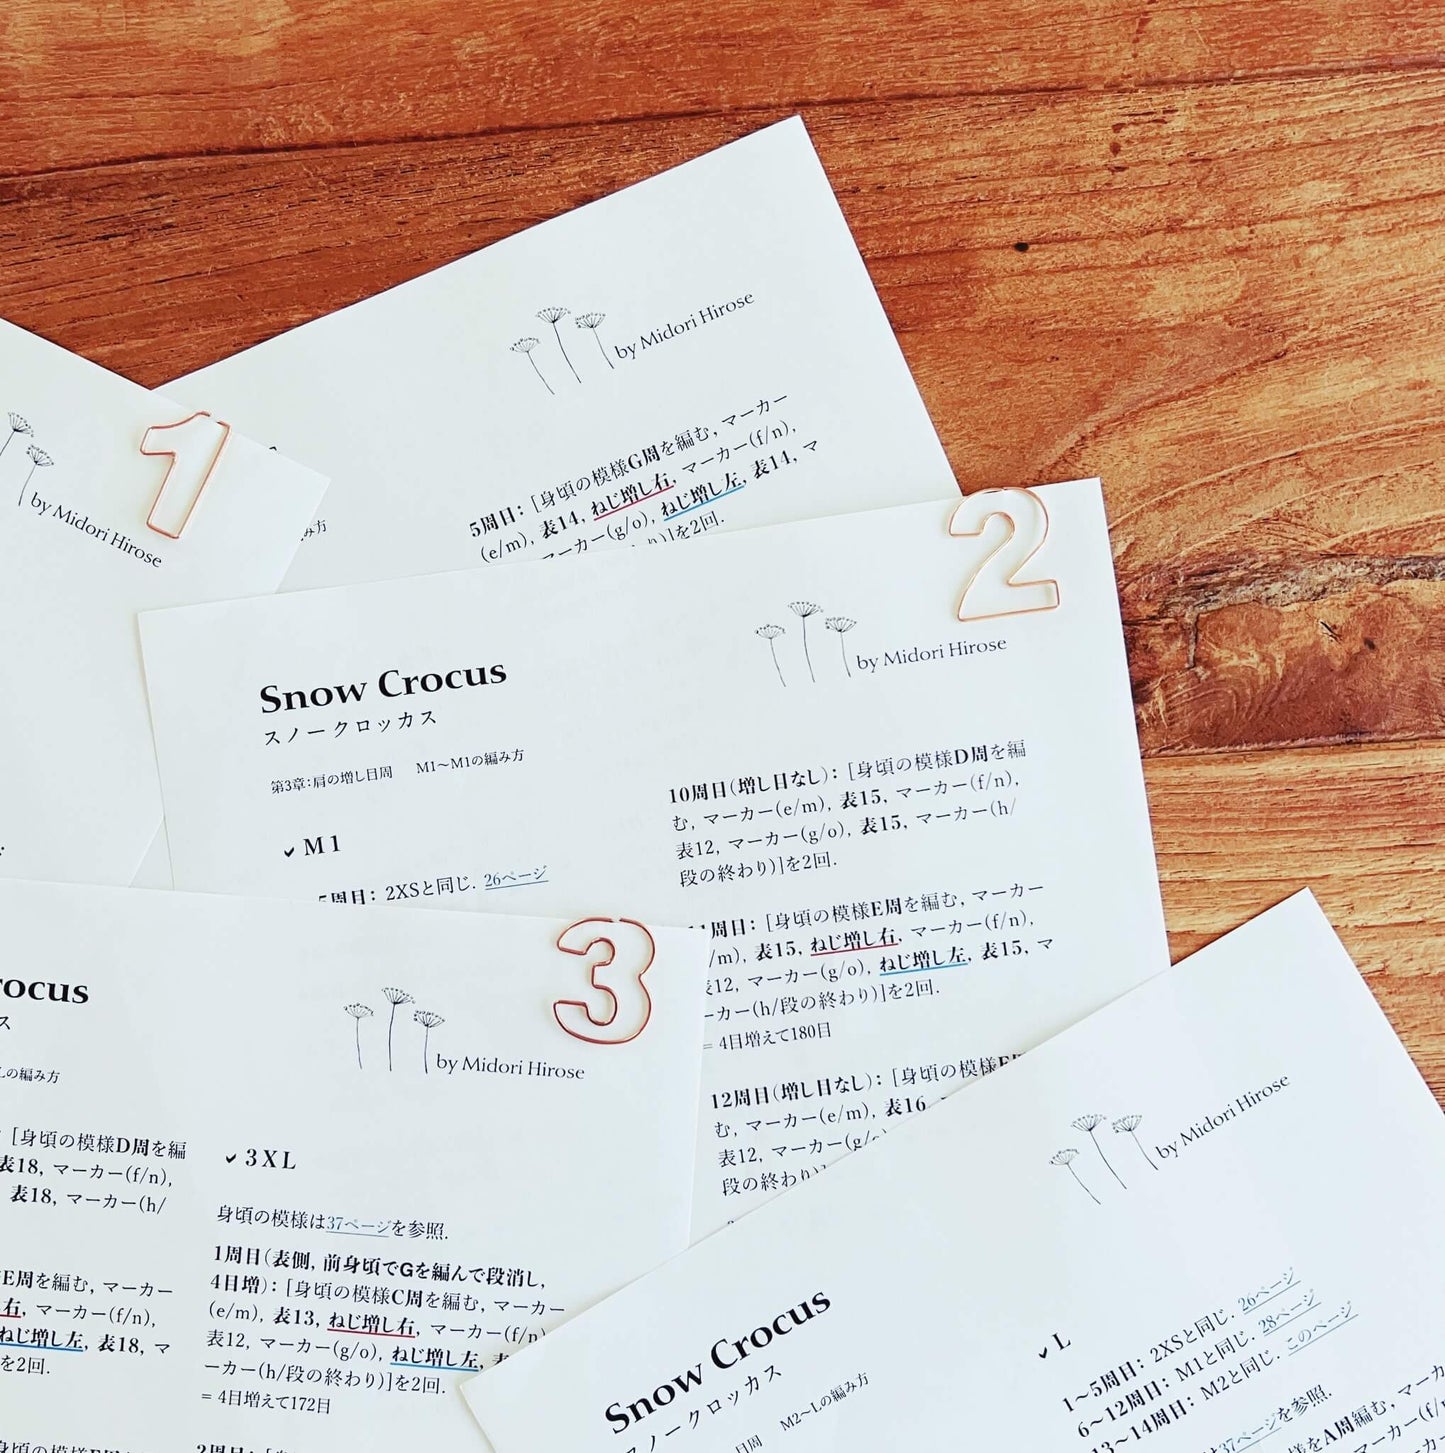 by Midori Hirose
5周目: [身頃の模様G周を編む, マーカー
(e/m), 表14, ねじ増し右, マーカー(f/n),
マーカー(g/o), ねじ増し左, 表14, マ
)]を2回.
by Midori Hirose
み方
Snow Crocus
スノークロッカス
第3章:肩の増し目周 M1〜M1の編み方
✓ M1
5周目: 2XSと同じ. 26ページ
by Midori Hirose
10周目(増し目なし): [身頃の模様D周を編
む, マーカー(e/m), 表15, マーカー(f/n),
表12, マーカー(g/o), 表15, マーカー(h/
段の終わり)]を2回.
周目: [身頃の模様E周を編む, マーカー
/m), 表15, ねじ増し右, マーカー(f/n),
12, マーカー(g/o), ねじ増し左, 表15, マ
ーカー(h/段の終わり)]を2回.
= 4目増えて180目
12周目(増し目なし): [身頃の模様
む, マーカー(e/m), 表16,
表12, マーカー(g/o)
段の終わり)]
ocus
ス
の編み方
by Midori Hirose
: [身頃の模様D周を編
表18, マーカー(f/n),
表18, マーカー(h/
E周を編む, マーカー
右, マーカー(f/n),
ねじ増し左, 表18, マ
を2回.
✓ 3XL
身頃の模様は37ページを参照.
1周目(表側, 前身頃でGを編んで段消し,
4目増): [身頃の模様C周を編む, マーカー
(e/m), 表13, ねじ増し右, マーカー(f/n)
表12, マーカー(g/o), ねじ増し左,
ーカー(h/段の終わり)]を2回.
= 4目増えて172目
2周目: [
by Midori Hirose
Snow Crocus
スノークロッカス
目周 M2〜Lの編み方
✓ L
1〜5周目: 2XSと同じ. 26ページ
6〜12周目: M1と同じ. 28ページ
13〜14周目: M2と同じ. このページ
37ページを参照.
様をA周編む, マーカ
1
2
3